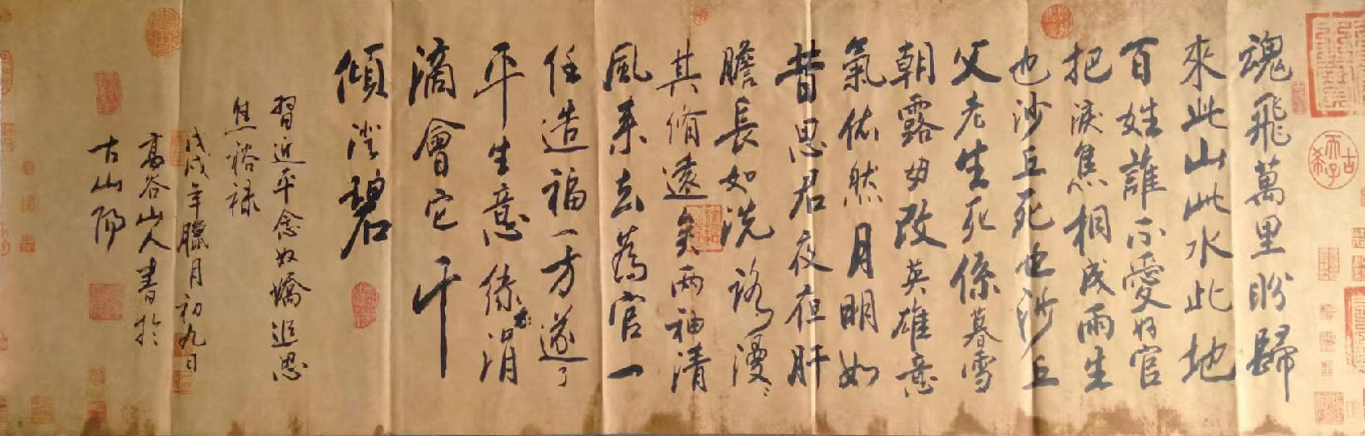 古希天子
魂飛萬里盼歸
來此山此水此地
百姓誰不愛好官
把淚焦桐成雨生
也沙丘死也沙丘
父老生死係暮雪
朝露毋改英雄意
氣依然月明如
昔思君夜夜肝
膽長如洗路漫漫
其脩遠矣兩袖清
風來去為官一
任造福一方遂了
平生意綠我涓
滴會它千
傾澄碧
習近平念奴嬌追思
焦裕禄
戊戌年臘月初九日
高谷山人書於
古山陽